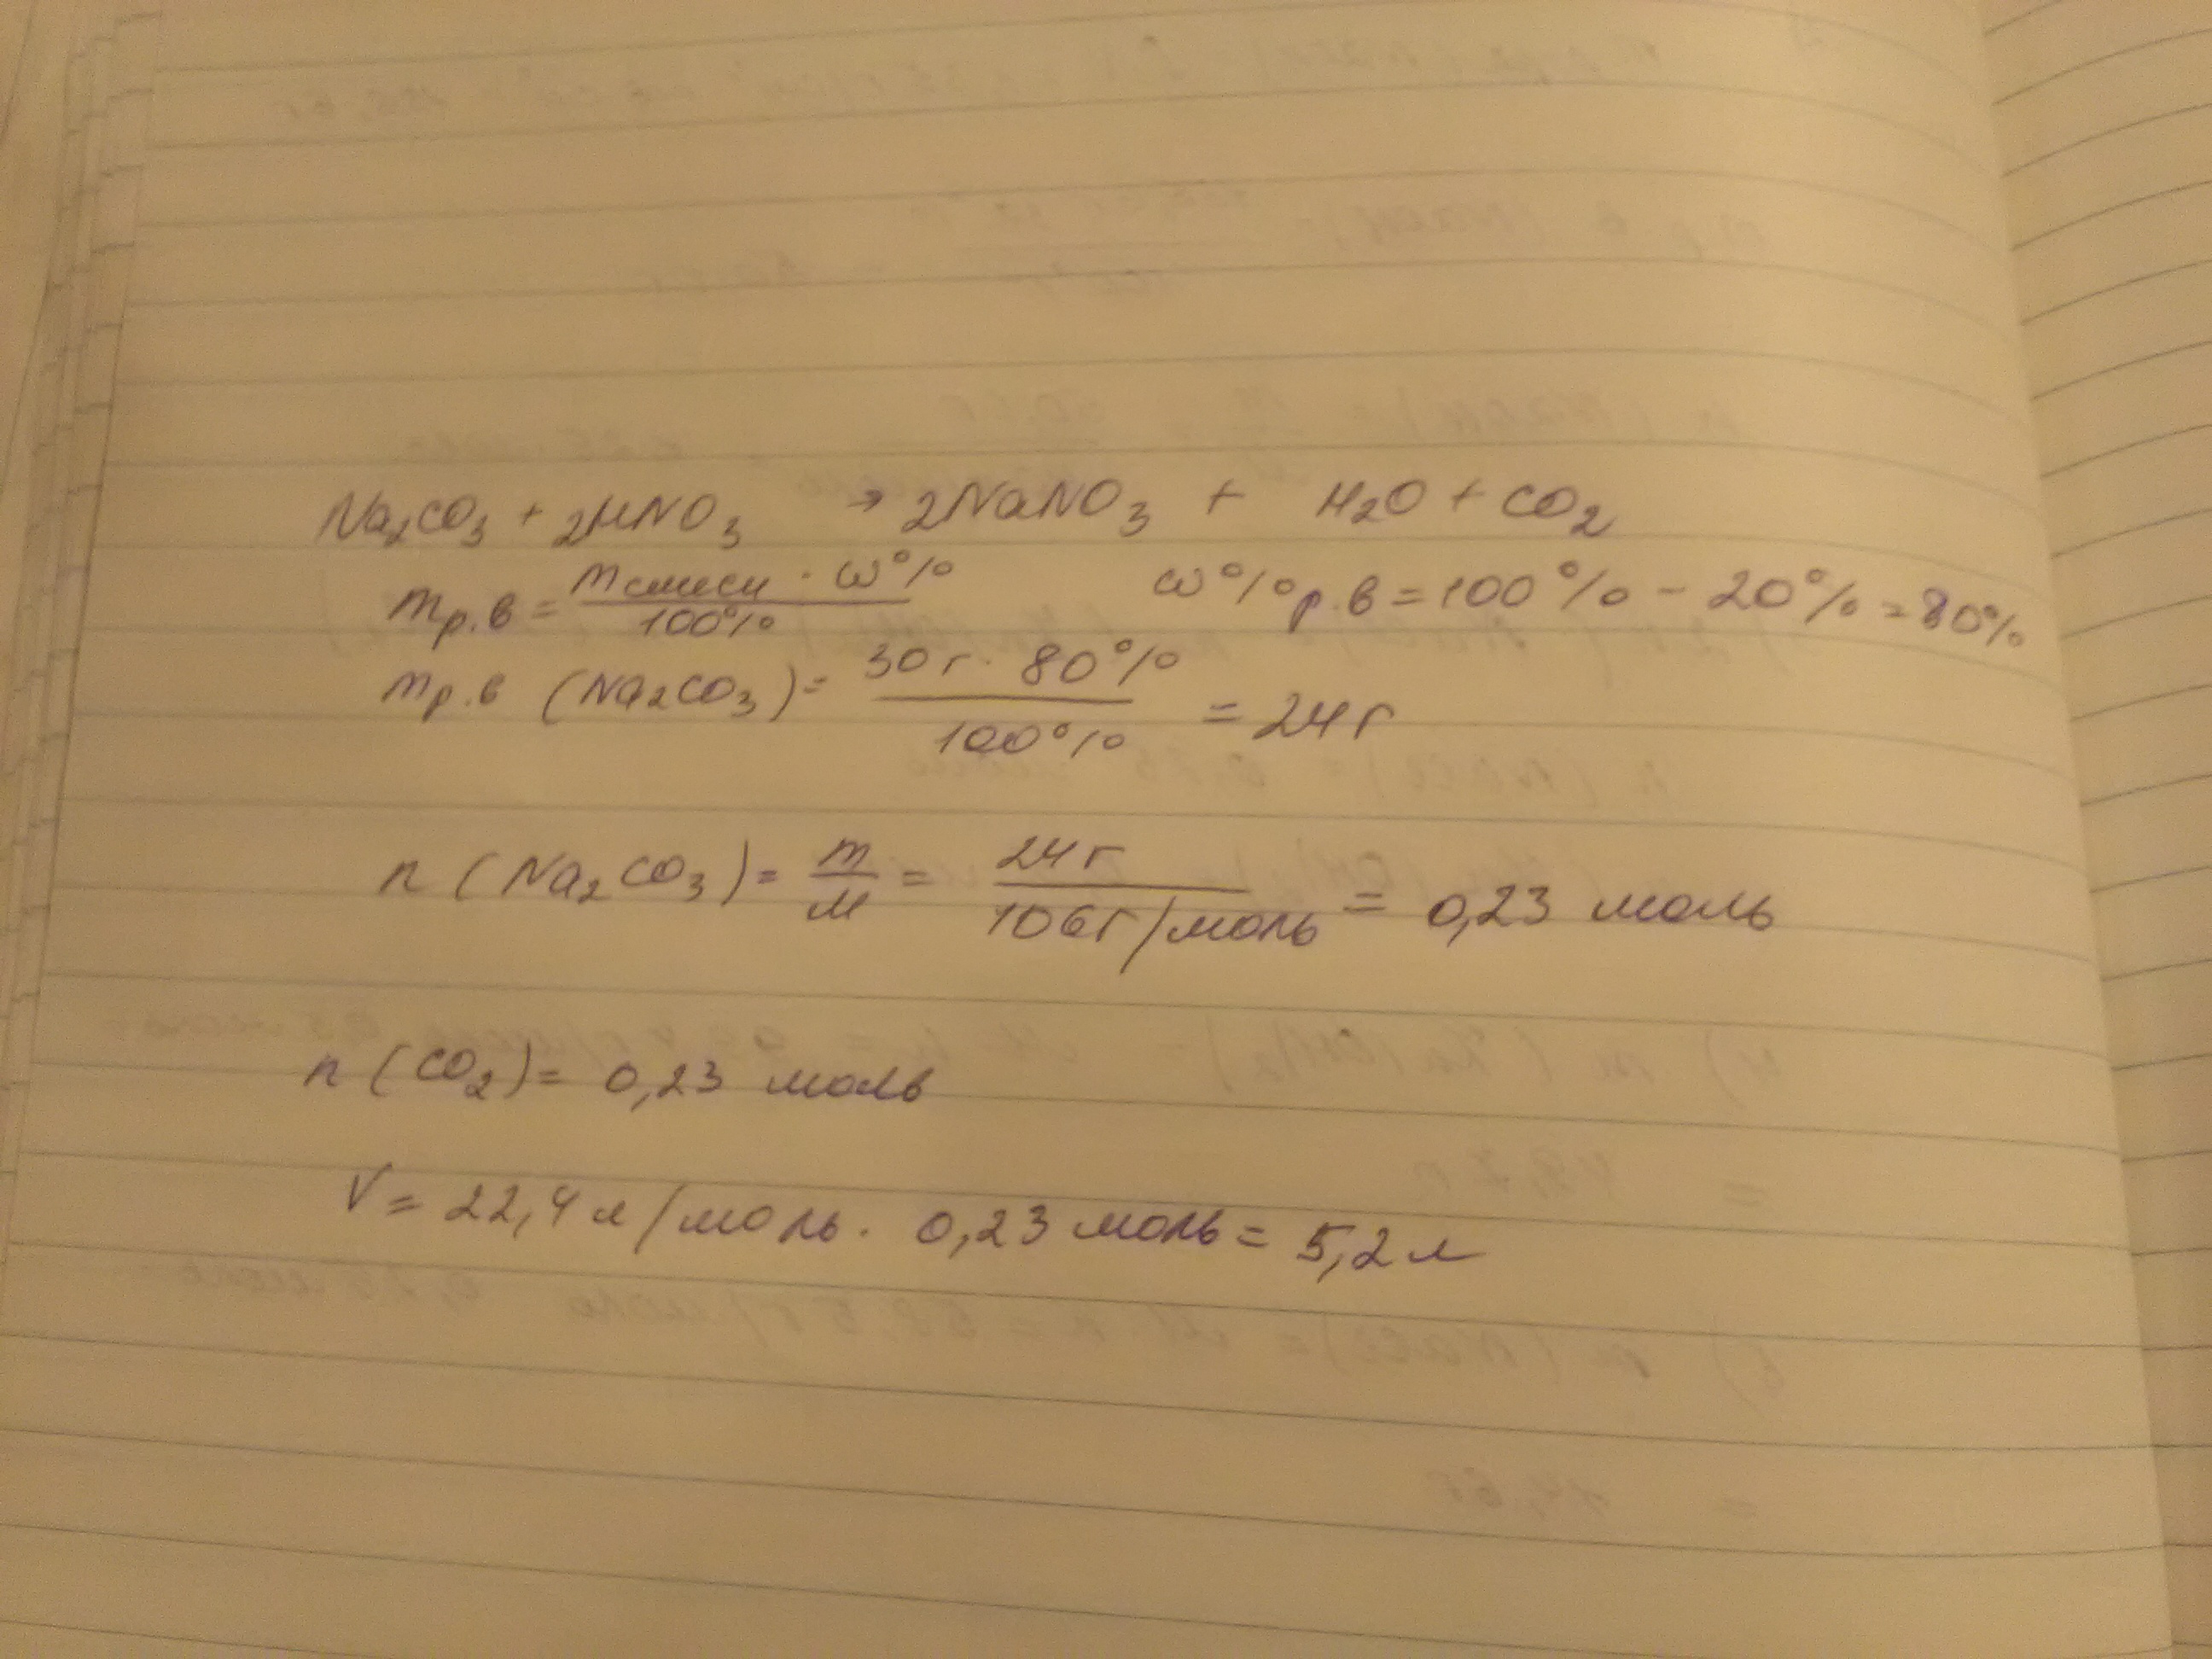 Na₂CO₃ + 2HNO₃ → 2NaNO₃ + H₂O + CO₂
mр.в = mсмеси · ω% / 100% ω%р.в = 100% - 20% = 80%
mр.в (Na₂CO₃) = 30г · 80% / 100% = 24г
n (Na₂CO₃) = m / M = 24г / 106г/моль = 0,23 моль
n (CO₂) = 0,23 моль
V = 22,4 л/моль · 0,23 моль = 5,2 л